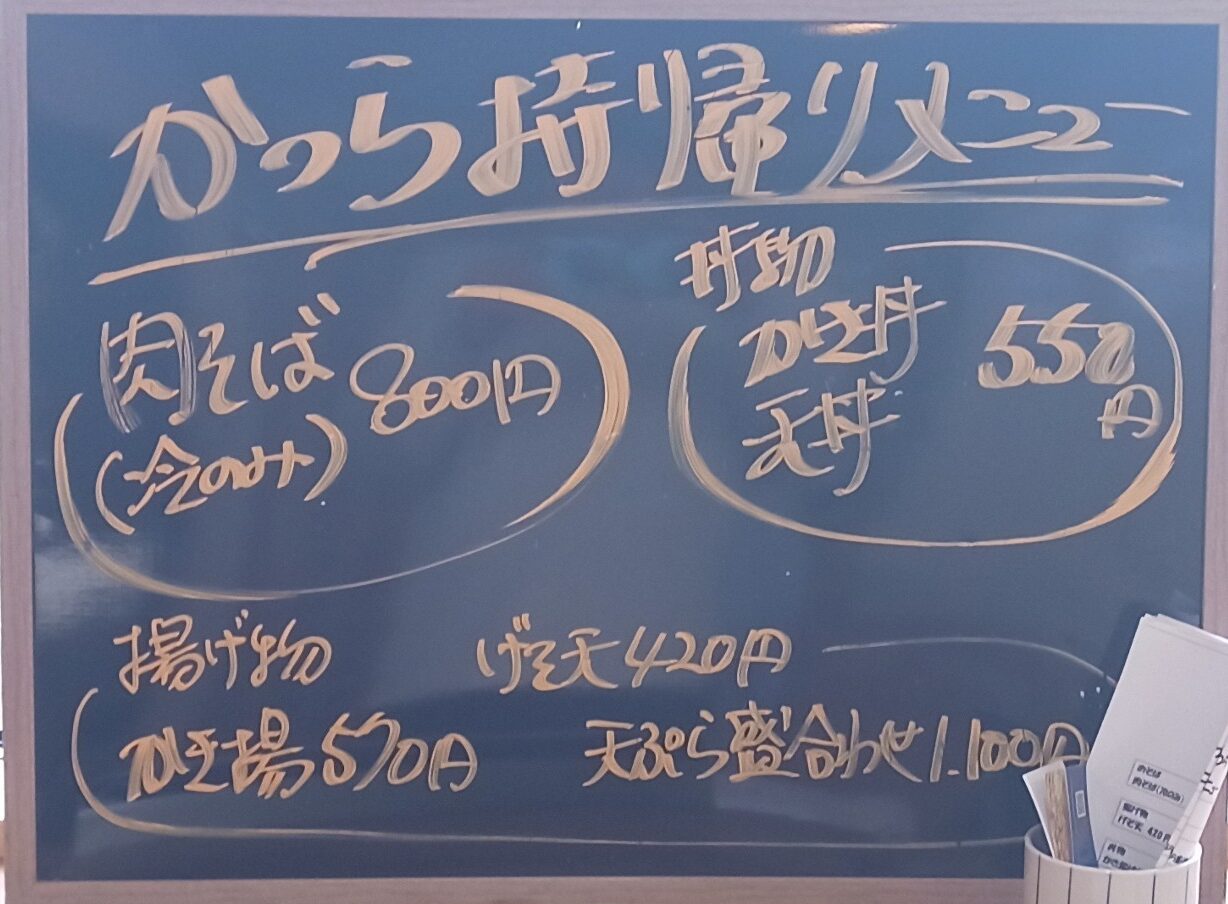 かつら持帰りメニュー
肉そば 800円
(冷のみ)
丼物
かき丼 550円
天丼
揚げ物
げそ天420円
かき揚570円
天ぷら盛合わせ1.100円
肉そば(700円)
揚げ物
げそ天 420円
丼物